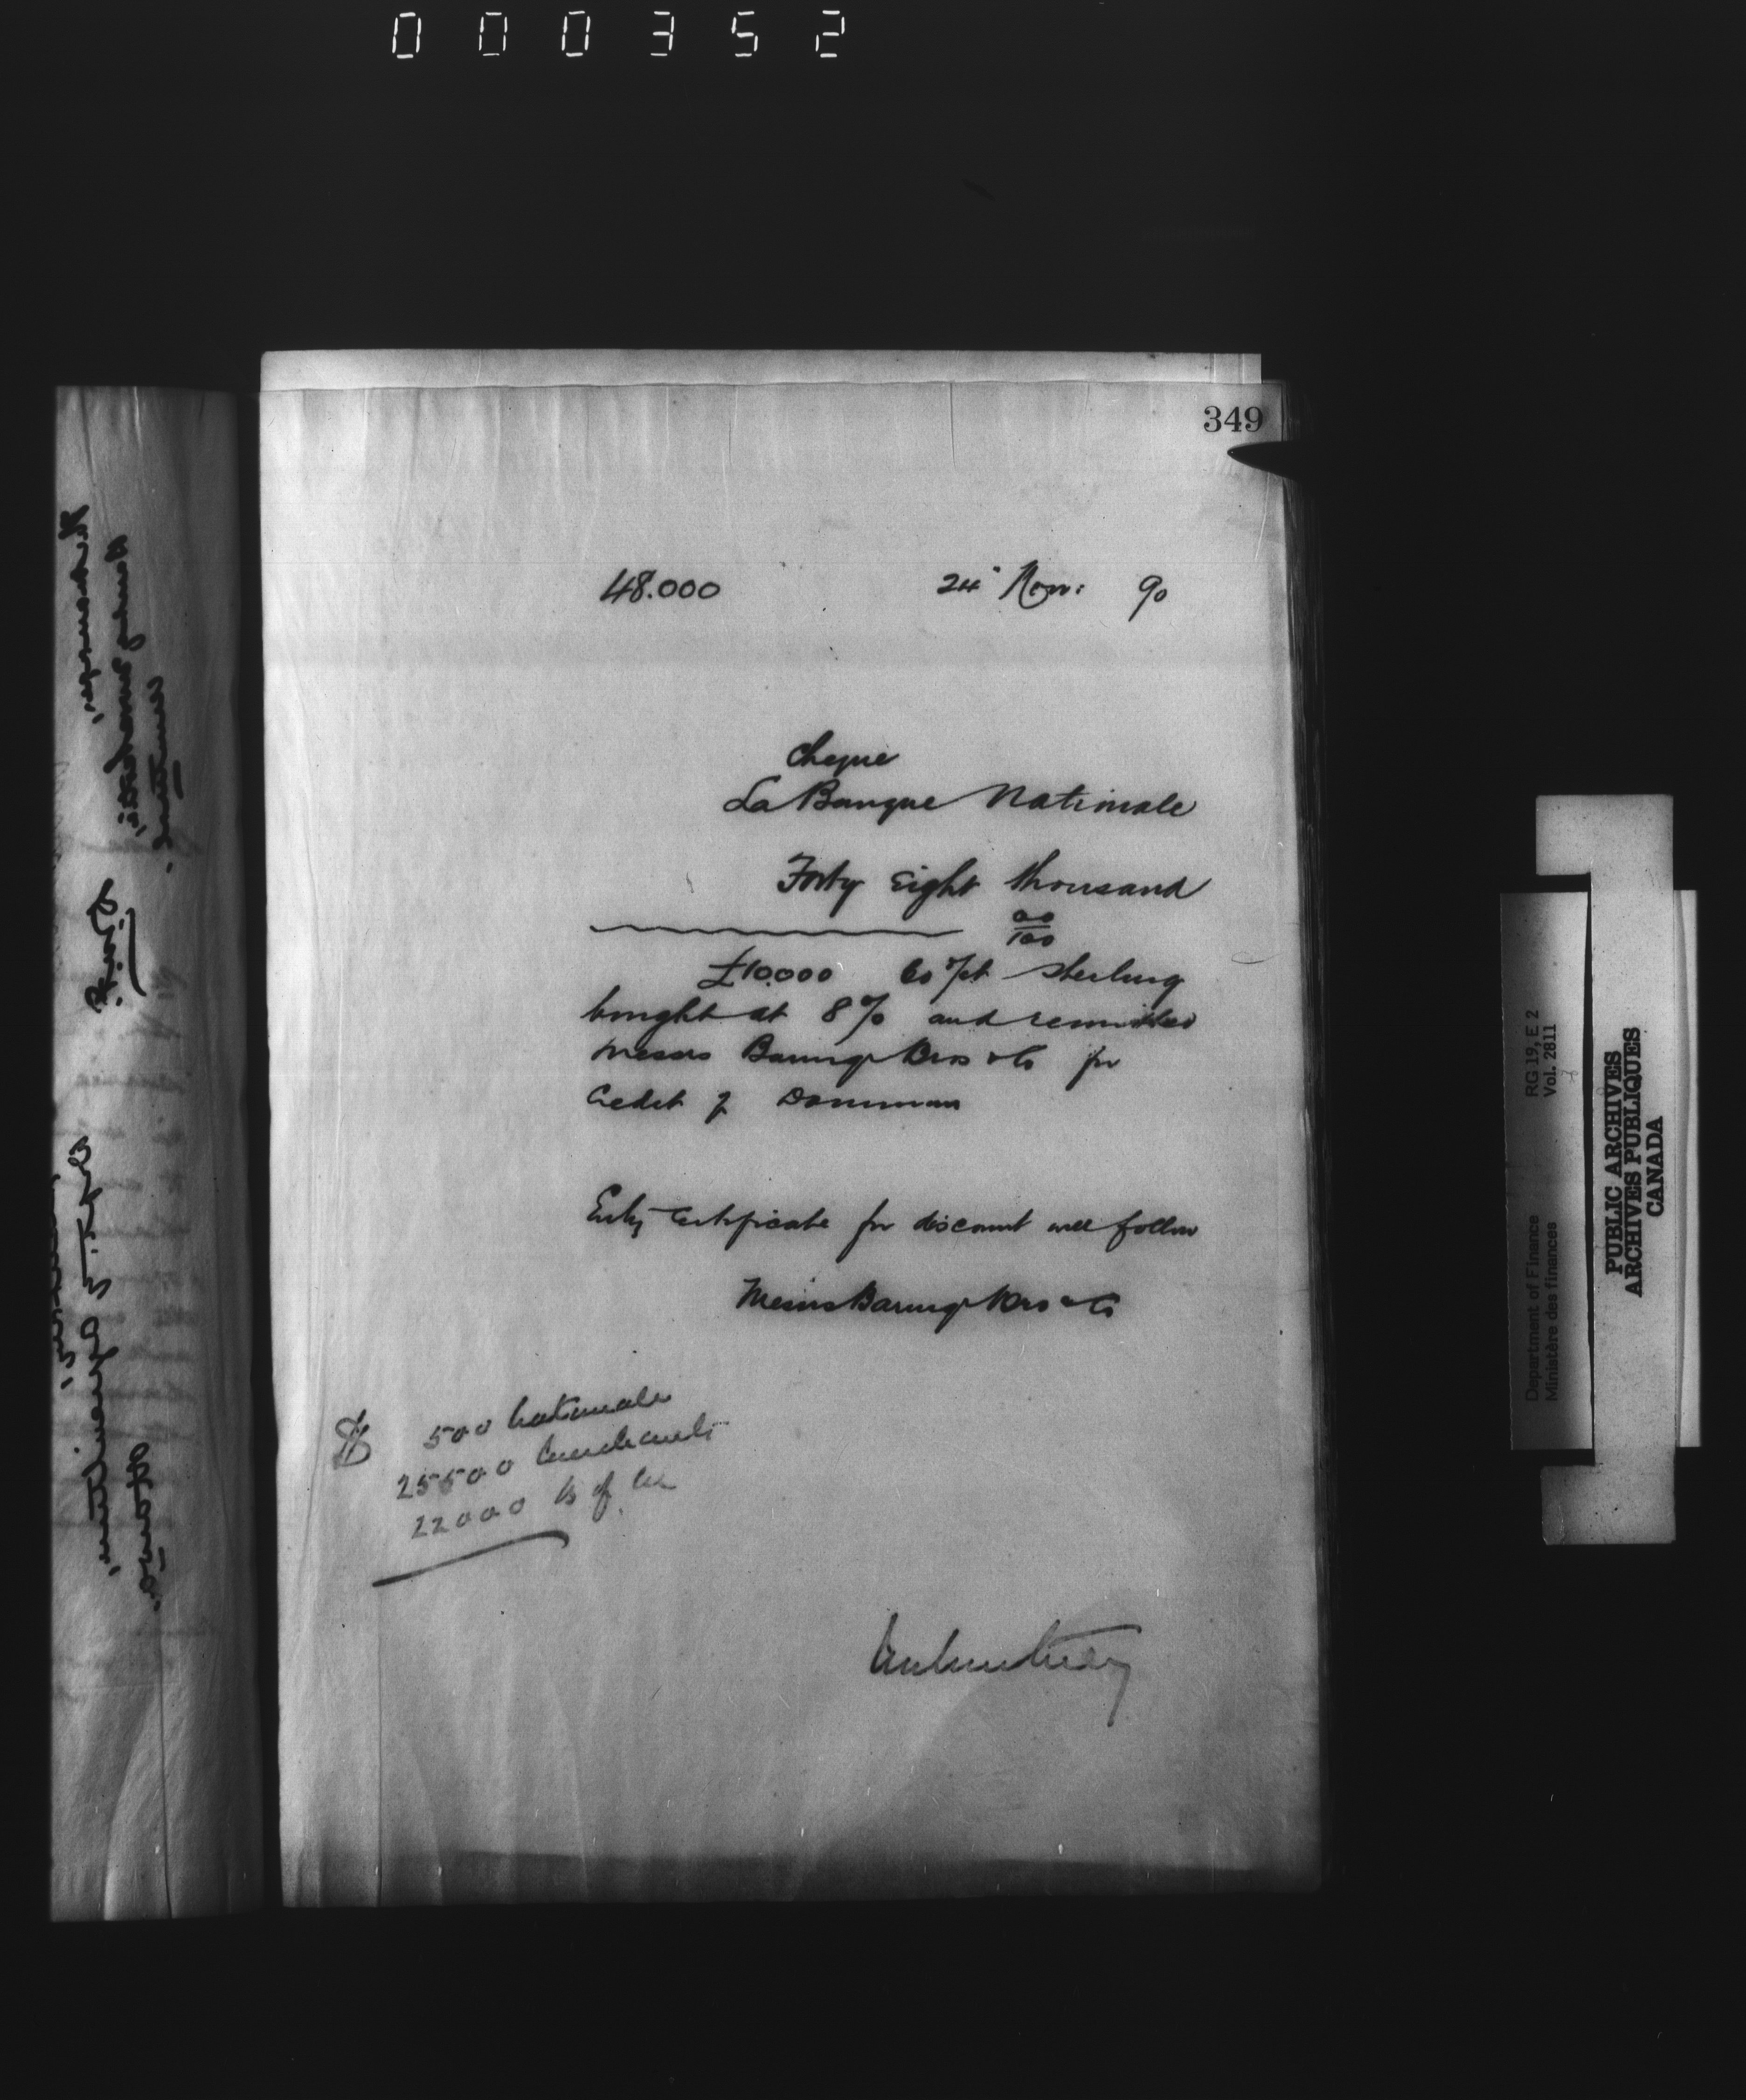 000352
349
48.000 24" Nov: 90
Cheque
La Banque Nationale
Forty Eight thousand
00/100
£10.000 60 d/st sterling
bought at 8% and remitted
Messrs Baring Bros & Co for
Credit of Dominion
Entry Certificate for discount will follow
Messrs Baring Bros & Co
500 Nationale
25500 Merchants
22000 B of
Department of Finance RG 19, E 2
Ministère des finances Vol. 2811
PUBLIC ARCHIVES
ARCHIVES PUBLIQUES
CANADA